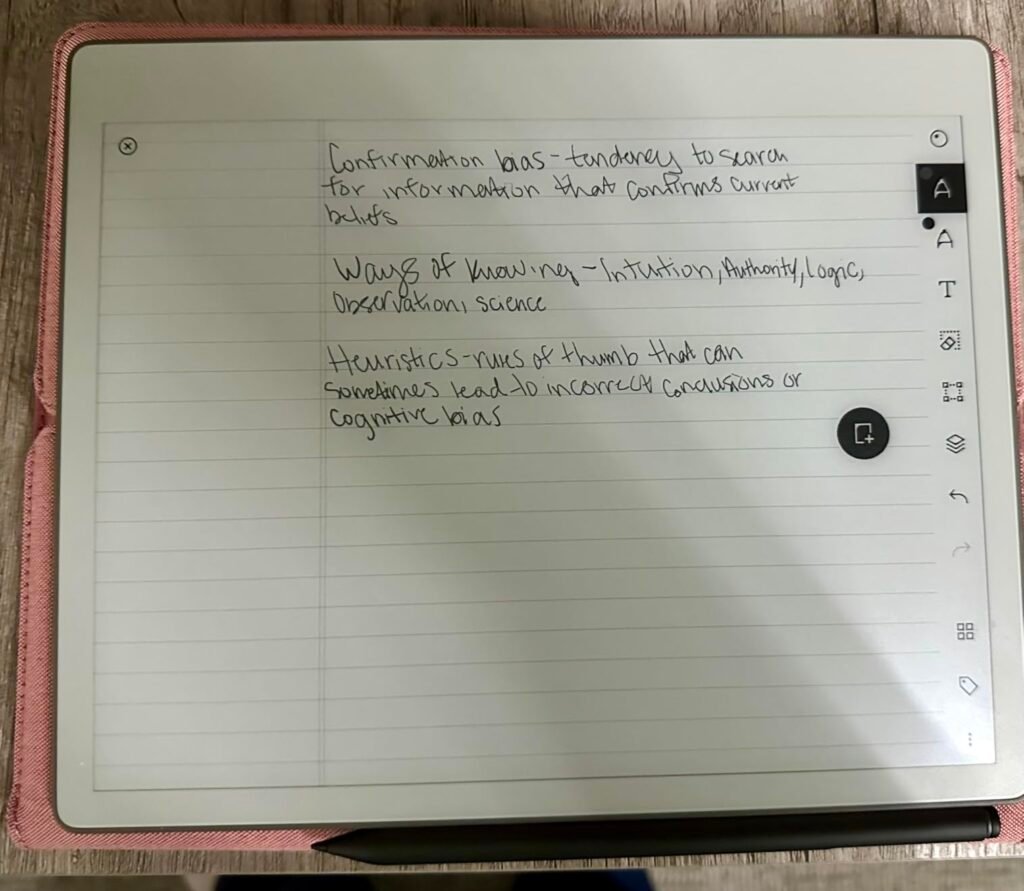 Confirmation bias - tendency to search
for information that confirms current
beliefs
Ways of knowing - Intuition, Authority, Logic,
Observation, science
Heuristics - rules of thumb that can
sometimes lead to incorrect conclusions or
cognitive bias
T